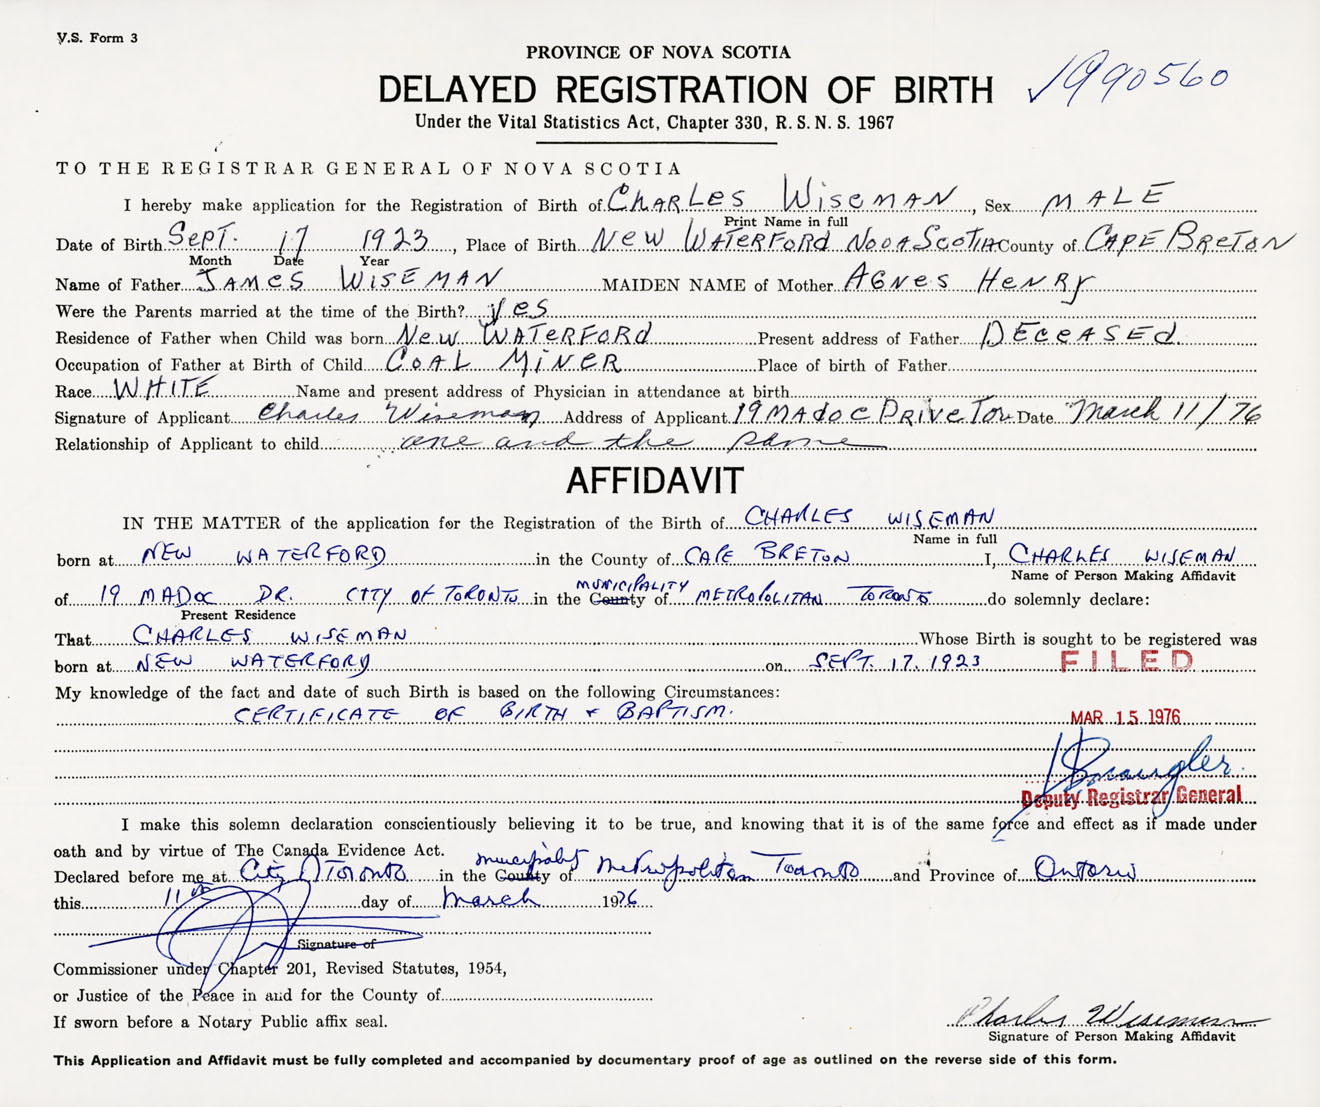 V.S. Form 3
PROVINCE OF NOVA SCOTIA
DELAYED REGISTRATION OF BIRTH
1990560
Under the Vital Statistics Act, Chapter 330, R. S. N. S. 1967
TO THE REGISTRAR GENERAL OF NOVA SCOTIA
I hereby make application for the Registration of Birth of CHARLES WISEMAN, Sex MALE
Print Name in full
Date of Birth SEPT. 17 1923, Place of Birth NEW WATERFORD NOVA SCOTIA County of CAPE BRETON
Month Date Year
Name of Father JAMES WISEMAN MAIDEN NAME of Mother AGNES HENRY
Were the Parents married at the time of the Birth? yes
Residence of Father when Child was born NEW WATERFORD Present address of Father DECEASED.
Occupation of Father at Birth of Child COAL MINER Place of birth of Father
Race WHITE Name and present address of Physician in attendance at birth
Signature of Applicant Charles Wiseman Address of Applicant 19 MADOC DRIVE TOR. Date March 11/76
Relationship of Applicant to child one and the same
AFFIDAVIT
IN THE MATTER of the application for the Registration of the Birth of CHARLES WISEMAN
Name in full
born at NEW WATERFORD in the County of CAPE BRETON I, CHARLES WISEMAN
Name of Person Making Affidavit
of 19 MADOC DR. CITY OF TORONTO in the County MUNICIPALITY of METROPOLITAN TORONTO do solemnly declare:
Present Residence
That CHARLES WISEMAN Whose Birth is sought to be registered was
born at NEW WATERFORD on SEPT. 17. 1923
FILED
My knowledge of the fact and date of such Birth is based on the following Circumstances:
CERTIFICATE OF BIRTH + BAPTISM.
MAR 15 1976
Deputy Registrar General
I make this solemn declaration conscientiously believing it to be true, and knowing that it is of the same force and effect as if made under
oath and by virtue of The Canada Evidence Act.
Declared before me at City of Toronto in the County municipality of Metropolitan Toronto and Province of Ontario
this 11th day of March 1976
Signature of
Commissioner under Chapter 201, Revised Statutes, 1954,
or Justice of the Peace in and for the County of
If sworn before a Notary Public affix seal.
Charles Wiseman
Signature of Person Making Affidavit
This Application and Affidavit must be fully completed and accompanied by documentary proof of age as outlined on the reverse side of this form.